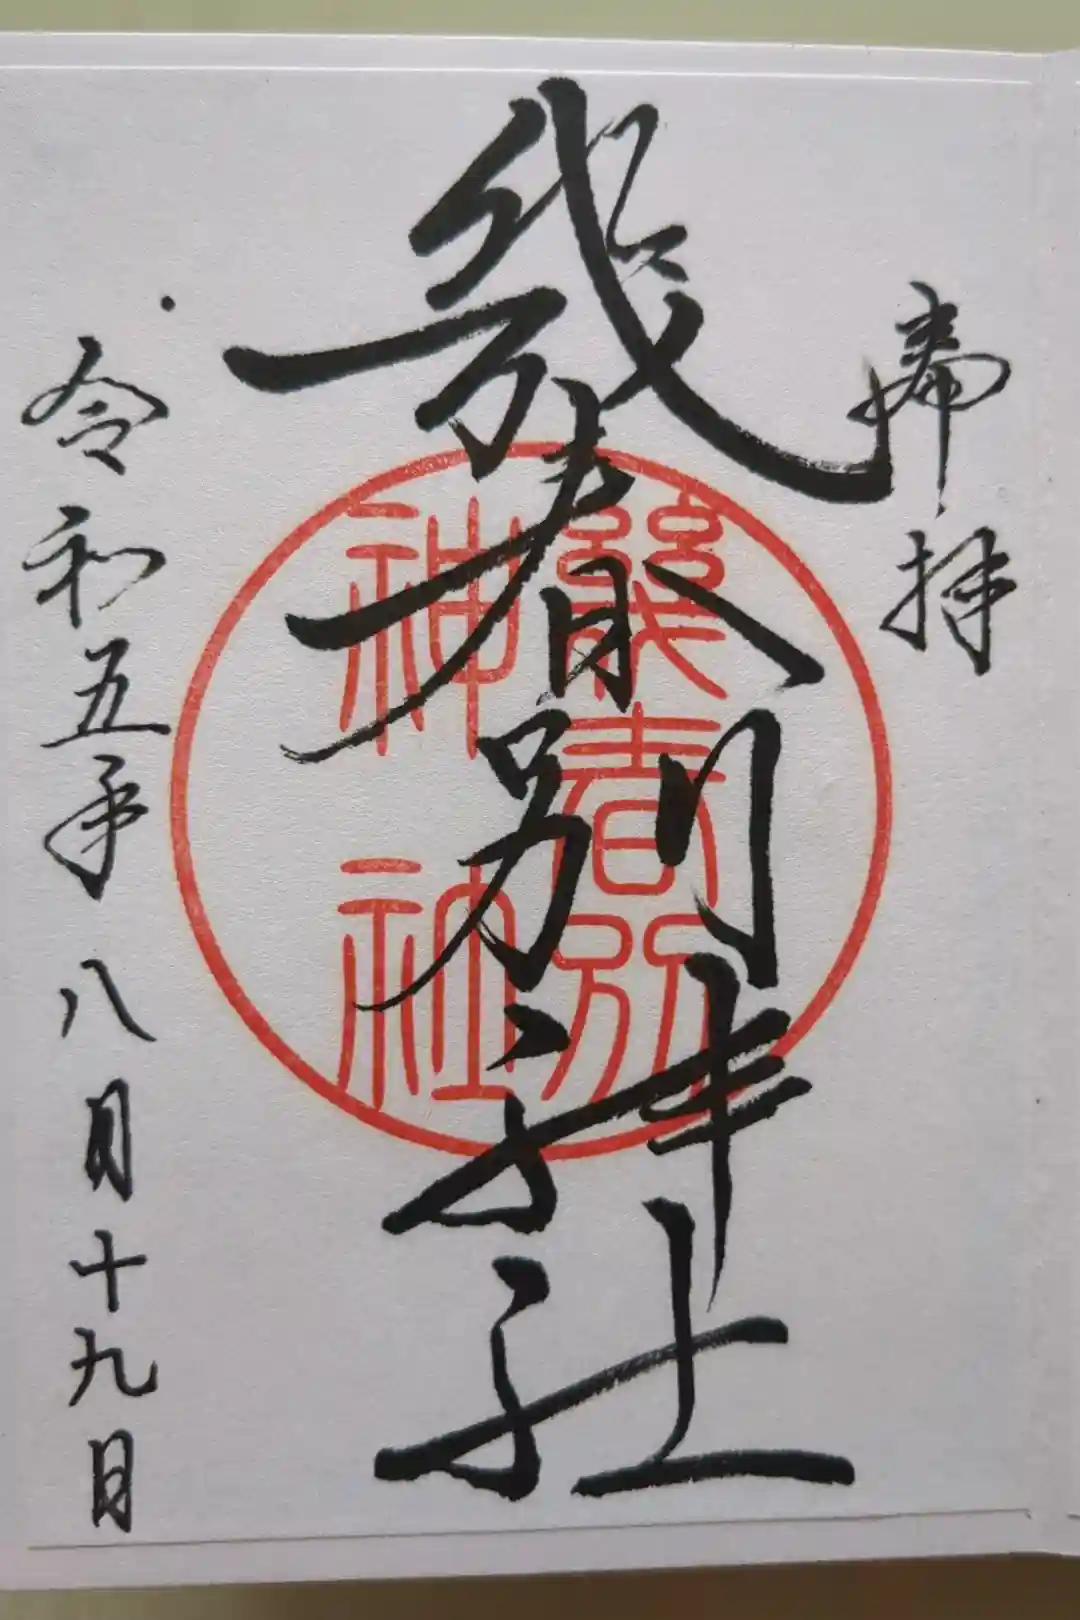 奉拝
幾春別神社
幾春別
神社
令和五年八月十九日